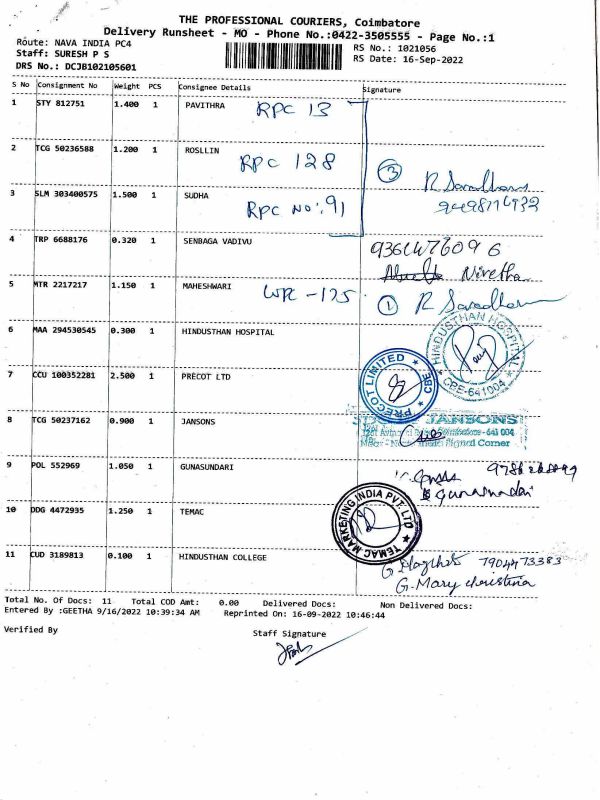 THE PROFESSIONAL COURIERS, Coimbatore
Delivery Runsheet - MO - Phone No.:0422-3505555 - Page No.:1
Route: NAVA INDIA PC4
Staff: SURESH P S
DRS No.: DCJB102105601
RS No.: 1021056
RS Date: 16-Sep-2022
S No Consignment No Weight PCS Consignee Details Signature
1 STY 812751 1.400 1 PAVITHRA RPC 13
2 TCG 50236588 1.200 1 ROSLLIN RPC 128
3 SLM 303400575 1.500 1 SUDHA RPC NO:91
3
4 TRP 6688176 0.320 1 SENBAGA VADIVU
Nivetha
5 MTR 2217217 1.150 1 MAHESHWARI WR-125
1
6 MAA 294530545 0.300 1 HINDUSTHAN HOSPITAL
HINDUSTHAN HOSPITAL
CBE-641004
7 CCU 100352281 2.500 1 PRECOT LTD
PRECOT LIMITED CBE
8 TCG 50237162 0.900 1 JANSONS
JANSONS
Coimbatore - 641 004
Signal Corner
9 POL 552969 1.050 1 GUNASUNDARI
10 DDG 4472935 1.250 1 TEMAC
TEMAC MARKETING INDIA PVT. LTD
11 CUD 3189813 0.100 1 HINDUSTHAN COLLEGE
7904473383
G. Mary christina
Total No. Of Docs: 11 Total COD Amt: 0.00 Delivered Docs: Non Delivered Docs:
Entered By :GEETHA 9/16/2022 10:39:34 AM Reprinted On: 16-09-2022 10:46:44
Verified By
Staff Signature